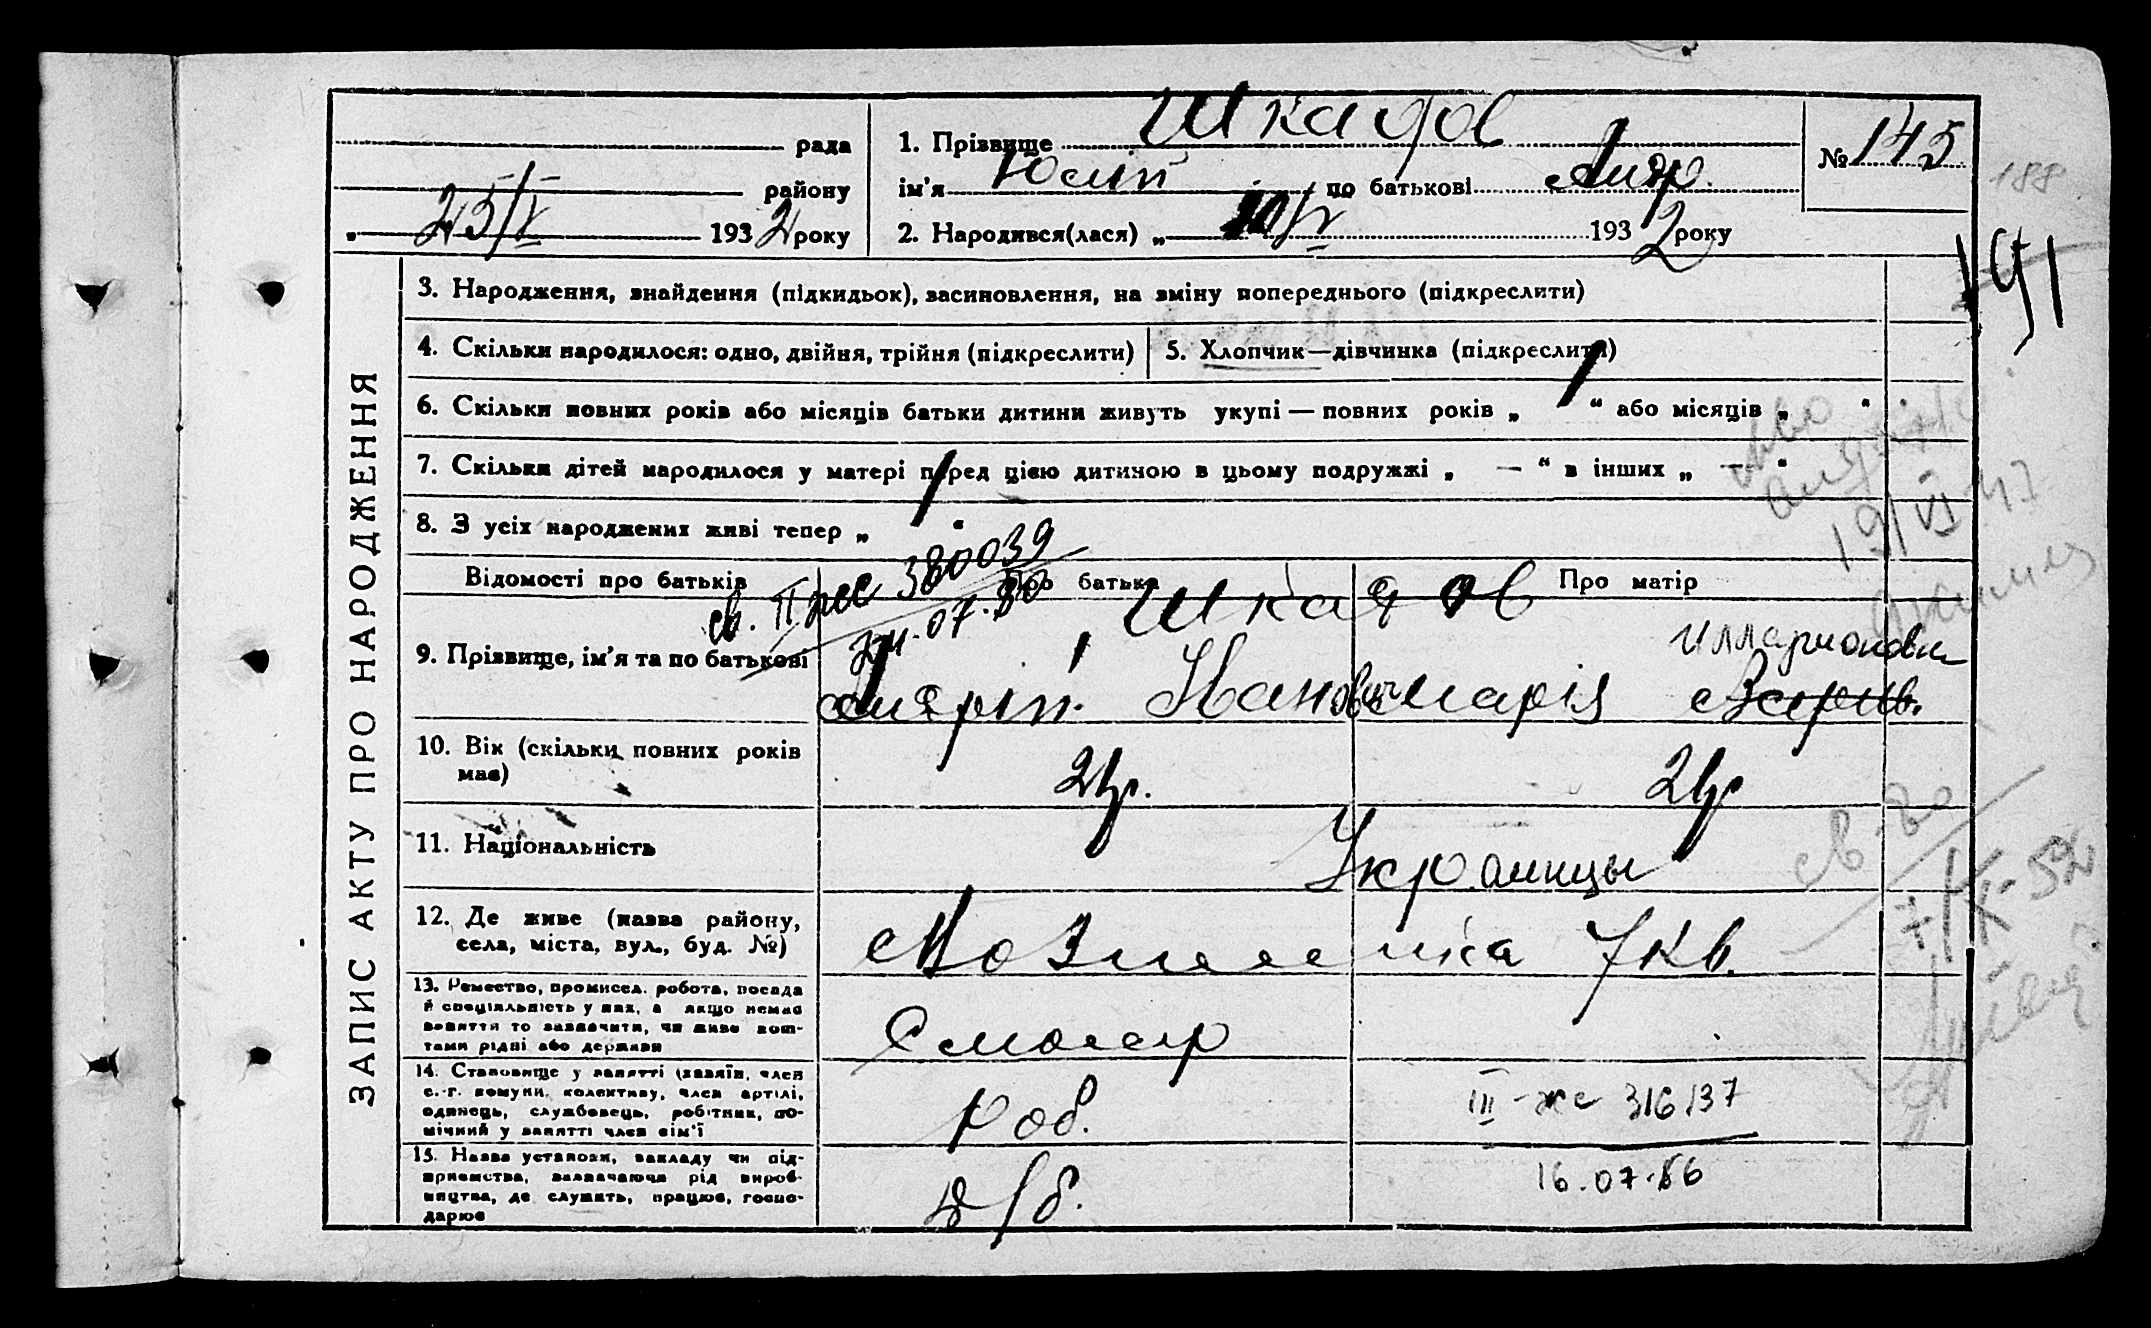 рада
районү
25/V 1932 року
1. Прізвище Шкадов
ім'я Юлій по батькові Андр.
2. Народився(лася) „ 20/V 1932 року
№ 145
188
191
ЗАПИС АКТУ ПРО НАРОДЖЕННЯ
3. Народження, знайдення (підкидьок), засиновлення, на зміну попереднього (підкреслити)
4. Скільки народилося: одно, двійня, трійня (підкреслити)
5. Хлопчик—дівчинка (підкреслити)
6. Скільки повних років або місяців батьки дитини живуть укупі — повних років „ 1 “ або місяців „ “
7. Скільки дітей народилося у матері перед цією дитиною в цьому подружжі „ — “ в інших „ — “
8. З усіх народжених живі тепер „ 1 “
19/VI 47
Відомості про батьків
Про батька
Про матір
св. II 380039
07.80
9. Прізвище, ім'я та по батькові
Шкадов
Андрій Иванович
Марія
Илларионовна
10. Вік (скільки повних років має)
24р.
24р
11. Національність
Украинцы
12. Де живе (назва району, села, міста, вул., буд. №)
7 кв.
13. Ремество, промисел, робота, посада
й спеціяльність у них, а якщо немає
заняття то зазначити, чи живе кош-
тами рідні або держави
14. Становище у занятті (хазяїн, член
с.-г. комуни, колективу, член артілі,
одинець, службовець, робітник, по-
мічний у занятті член сім'ї
Роб.
III-же 316137
16.07.86
15. Назва установи, закладу чи під-
приємства, зазначаючи рід вироб-
ництва, де служить, працює, госпо-
дарює